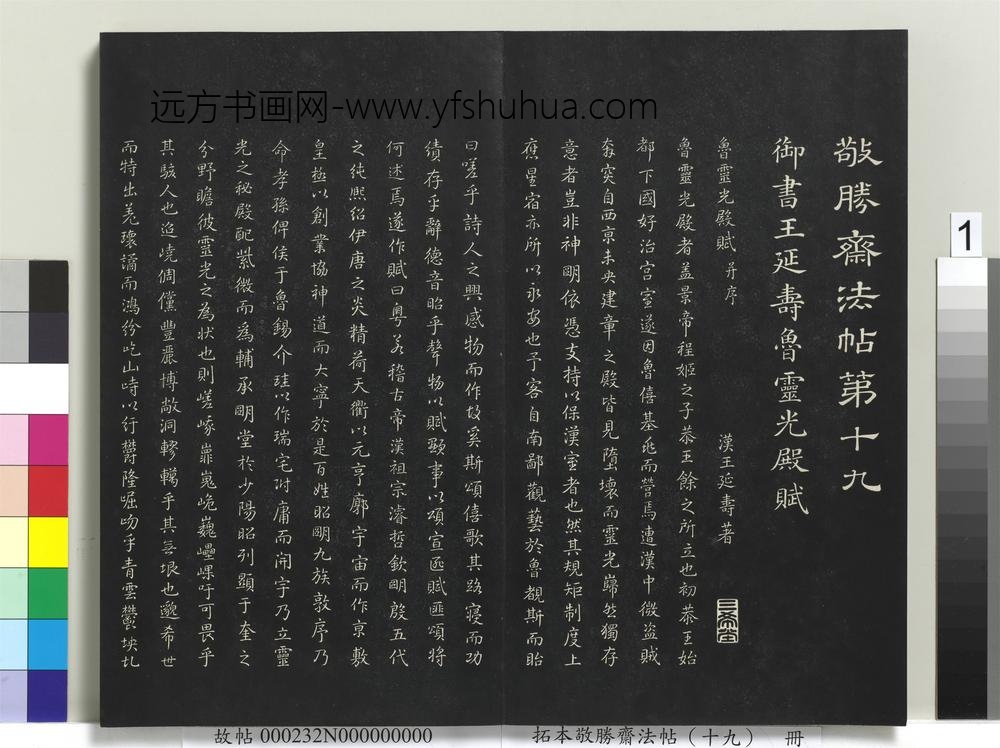 远方书画网-www.yfshuhua.com
敬勝齋法帖第十九
御書王延壽魯靈光殿賦
魯靈光殿賦 并序 漢王延壽著
三希堂
魯靈光殿者盖景帝程姬之子恭王餘之所立也初恭王始
都下國好治宫室遂因魯僖基兆而營焉遭漢中微盗賊
奔突自西京未央建章之殿皆見墮壞而靈光巋然獨存
意者豈非神明依憑支持以保漢室者也然其規矩制度上
應星宿亦所以永安也予客自南鄙觀藝於魯覩斯而眙
曰嗟乎詩人之興感物而作故奚斯頌僖歌其路寢而功
績存乎辭德音昭乎聲物以賦顯事以頌宣匪賦匪頌將
何述焉遂作賦曰粵若稽古帝漢祖宗濬哲欽明殷五代
之純熙紹伊唐之炎精荷天衢以元亨廓宇宙而作京敷
皇極以創業協神道而大寧於是百姓昭明九族敦序乃
命孝孫俾侯于魯錫介珪以作瑞宅附庸而開宇乃立靈
光之秘殿配紫微而為輔承明堂於少陽昭列顯于奎之
分野瞻彼靈光之為狀也則嵯峨嶵嵬峞巍㠥嵲吁可畏乎
其駭人也迢嶢倜儻豐麗博敞洞轇轕乎其無垠也邈希世
而特出羌瓌譎而鴻紛屹山峙以紆鬱隆崛岉乎青雲鬱坱圠
1
故帖 000232N000000000
拓本敬勝齋法帖（十九） 冊